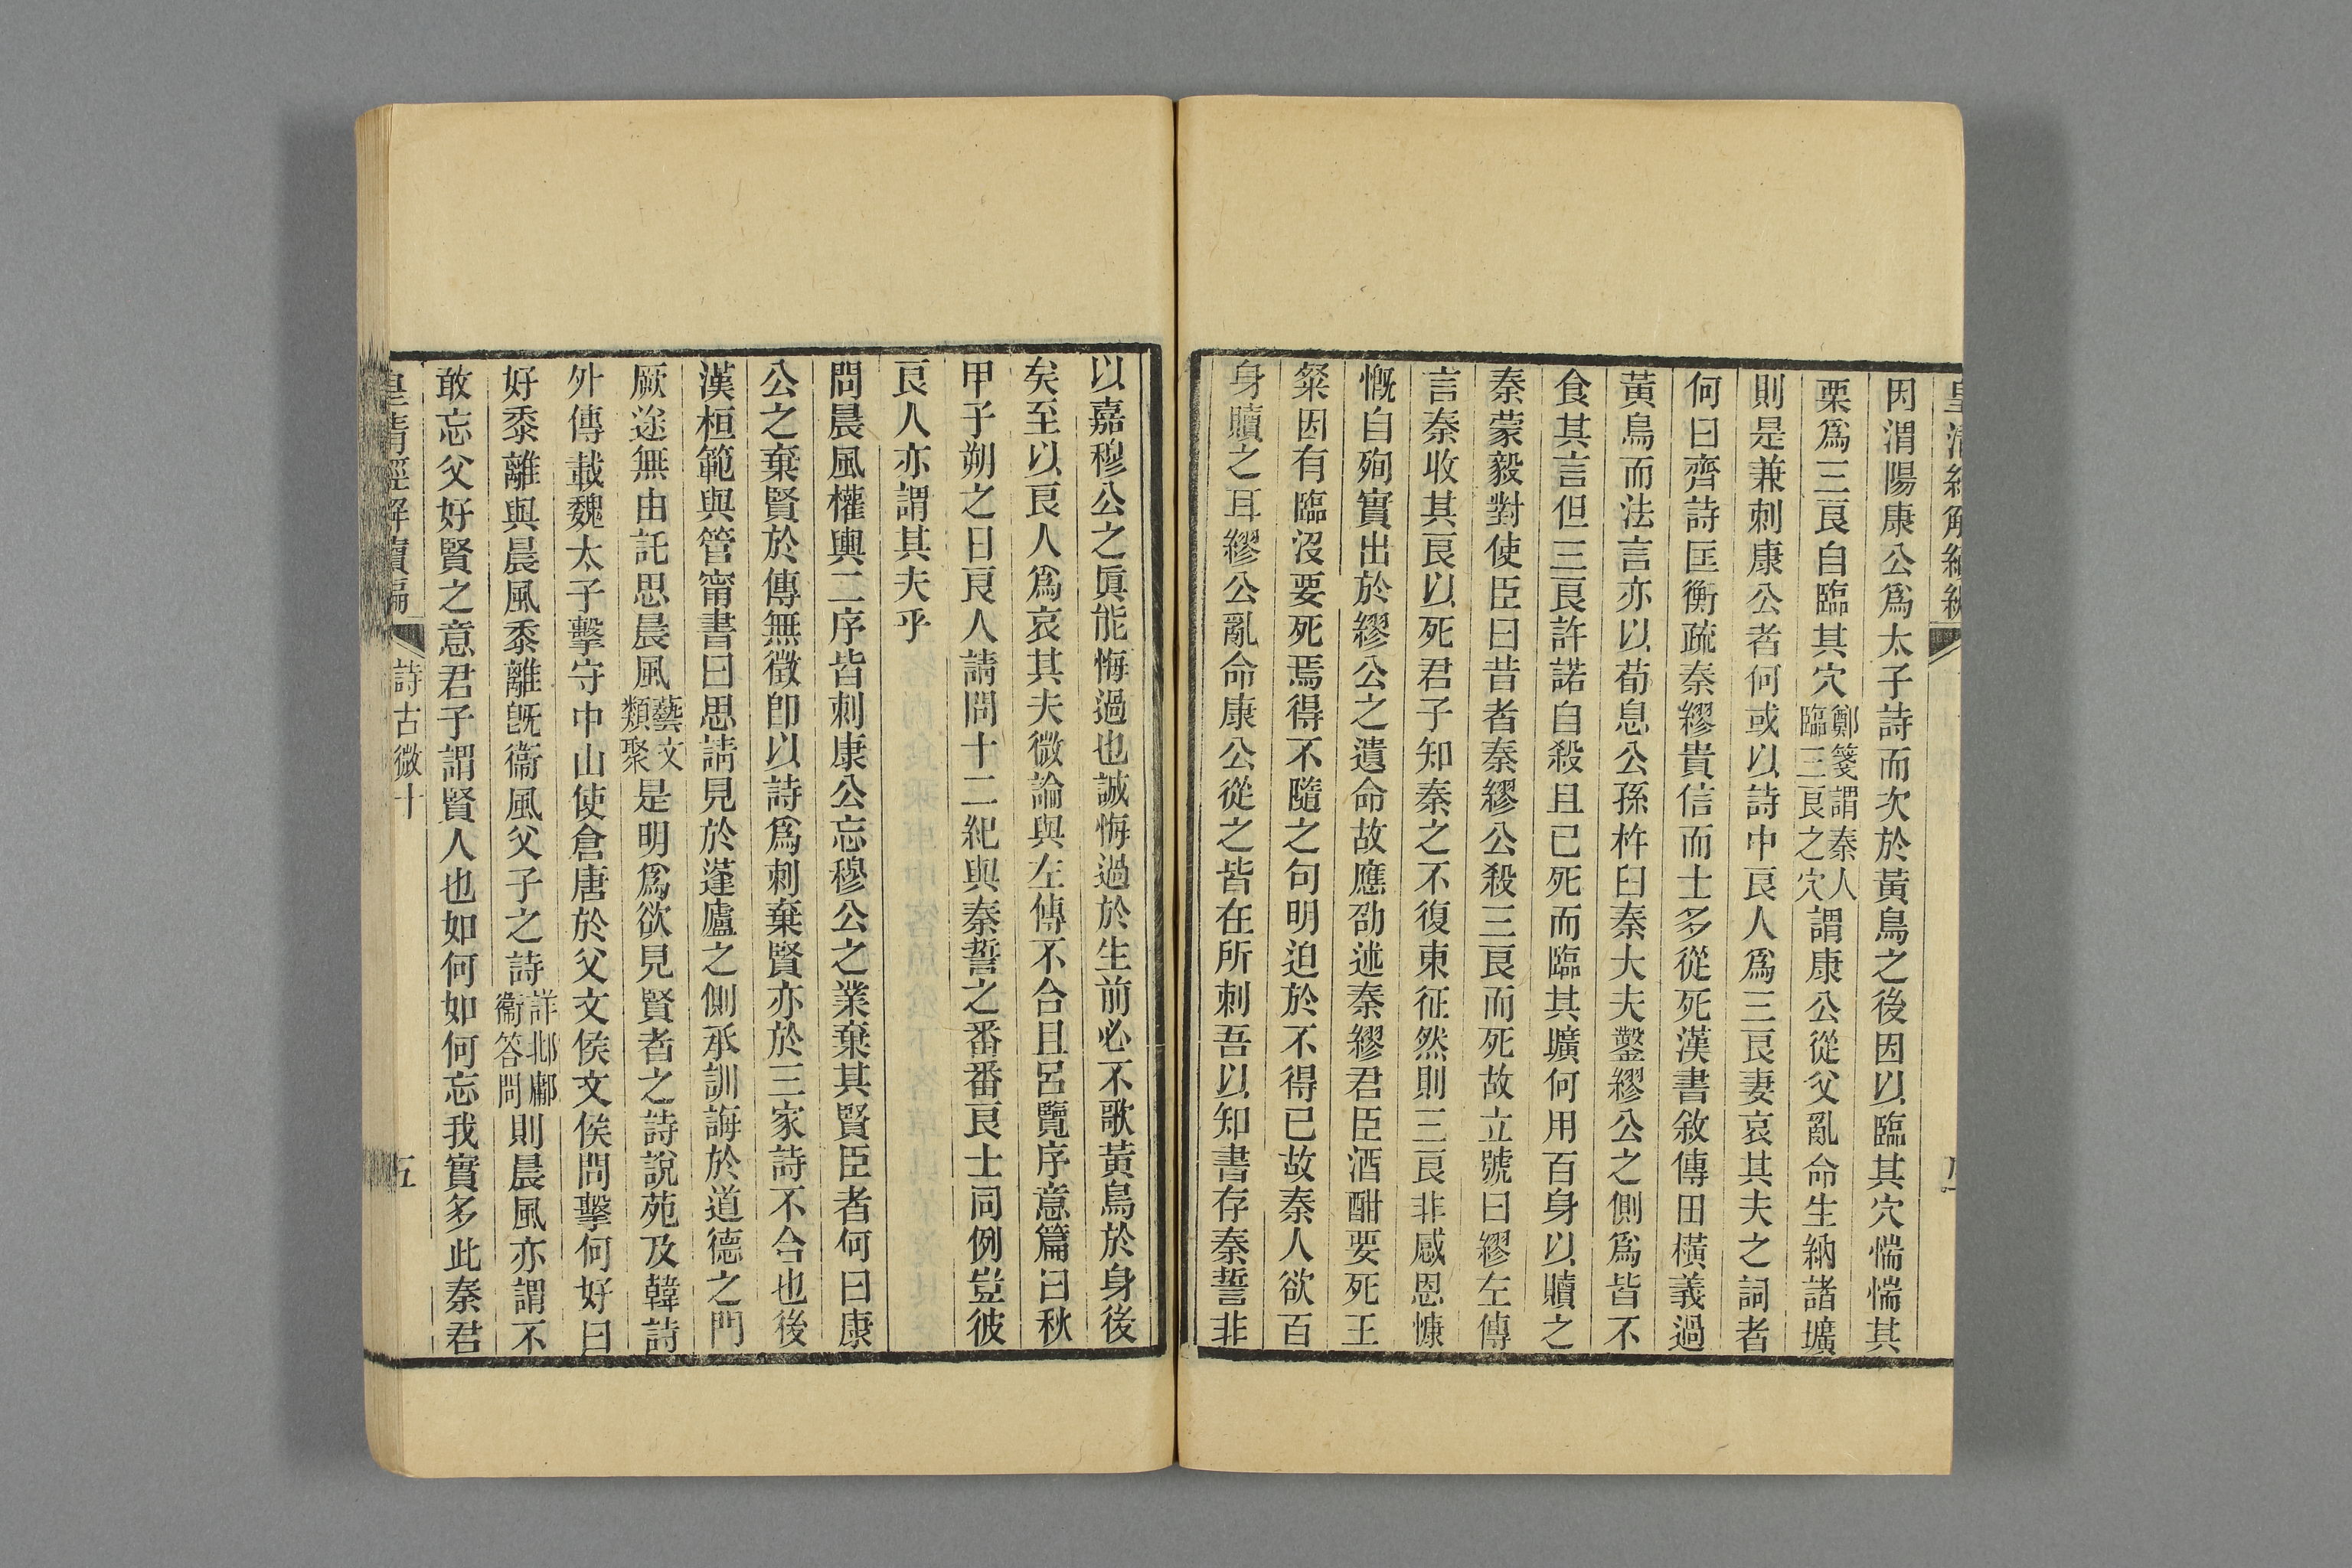 因渭陽康公爲太子詩而次於黃鳥之後因以臨其穴惴惴其
栗爲三良自臨其穴鄭箋謂秦人臨三良之穴謂康公從父亂命生納諸壙
則是兼刺康公者何或以詩中良人爲三良妻哀其夫之詞者
何曰齊詩匡衡疏秦繆貴信而士多從死漢書敘傳田橫義過
黃鳥而法言亦以荀息公孫杵臼秦大夫鑿繆公之側爲皆不
食其言但三良許諾自殺且已死而臨其壙何用百身以贖之
秦蒙毅對使臣曰昔者秦繆公殺三良而死故立號曰繆左傳
言秦收其良以死君子知秦之不復東征然則三良非感恩慷
慨自殉實出於繆公之遺命故應劭述秦繆君臣酒酣要死王
粲因有臨沒要死焉得不隨之句明迫於不得已故秦人欲百
身贖之耳繆公亂命康公從之皆在所刺吾以知書存秦誓非
以嘉穆公之眞能悔過也誠悔過於生前必不歌黃鳥於身後
矣至以良人爲哀其夫微論與左傳不合且呂覽序意篇曰秋
甲子朔之日良人請問十二紀與秦誓之番番良士同例豈彼
良人亦謂其夫乎
問晨風權輿二序皆刺康公忘穆公之業棄其賢臣者何曰康
公之棄賢於傳無徵卽以詩爲刺棄賢亦於三家詩不合也後
漢桓範與管甯書曰思請見於蓬廬之側承訓誨於道德之門
厥途無由託思晨風藝文類聚是明爲欲見賢者之詩說苑及韓詩
外傳載魏太子擊守中山使倉唐於父文侯文侯問擊何好曰
好黍離與晨風黍離旣衞風父子之詩詳邶鄘衞答問則晨風亦謂不
敢忘父好賢之意君子謂賢人也如何如何忘我實多此秦君
皇清經解續編 詩古微十 五